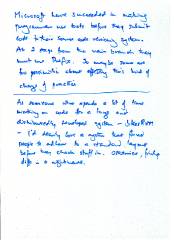 Microsoft have succeeded in making
programmers run tests before they submit
code to their source code versioning system.
At 2 steps from the main branch they
must use Prefix. So maybe some
for possibility about effecting this kind of
change of practice.
As someone who spends a lot of time
working on code for a large and
distributedly developed system -
- I'd dearly love a system that forced
people to adhere to a standard layout
before they check stuff in. Otherwise,
diffs - a nightmare.